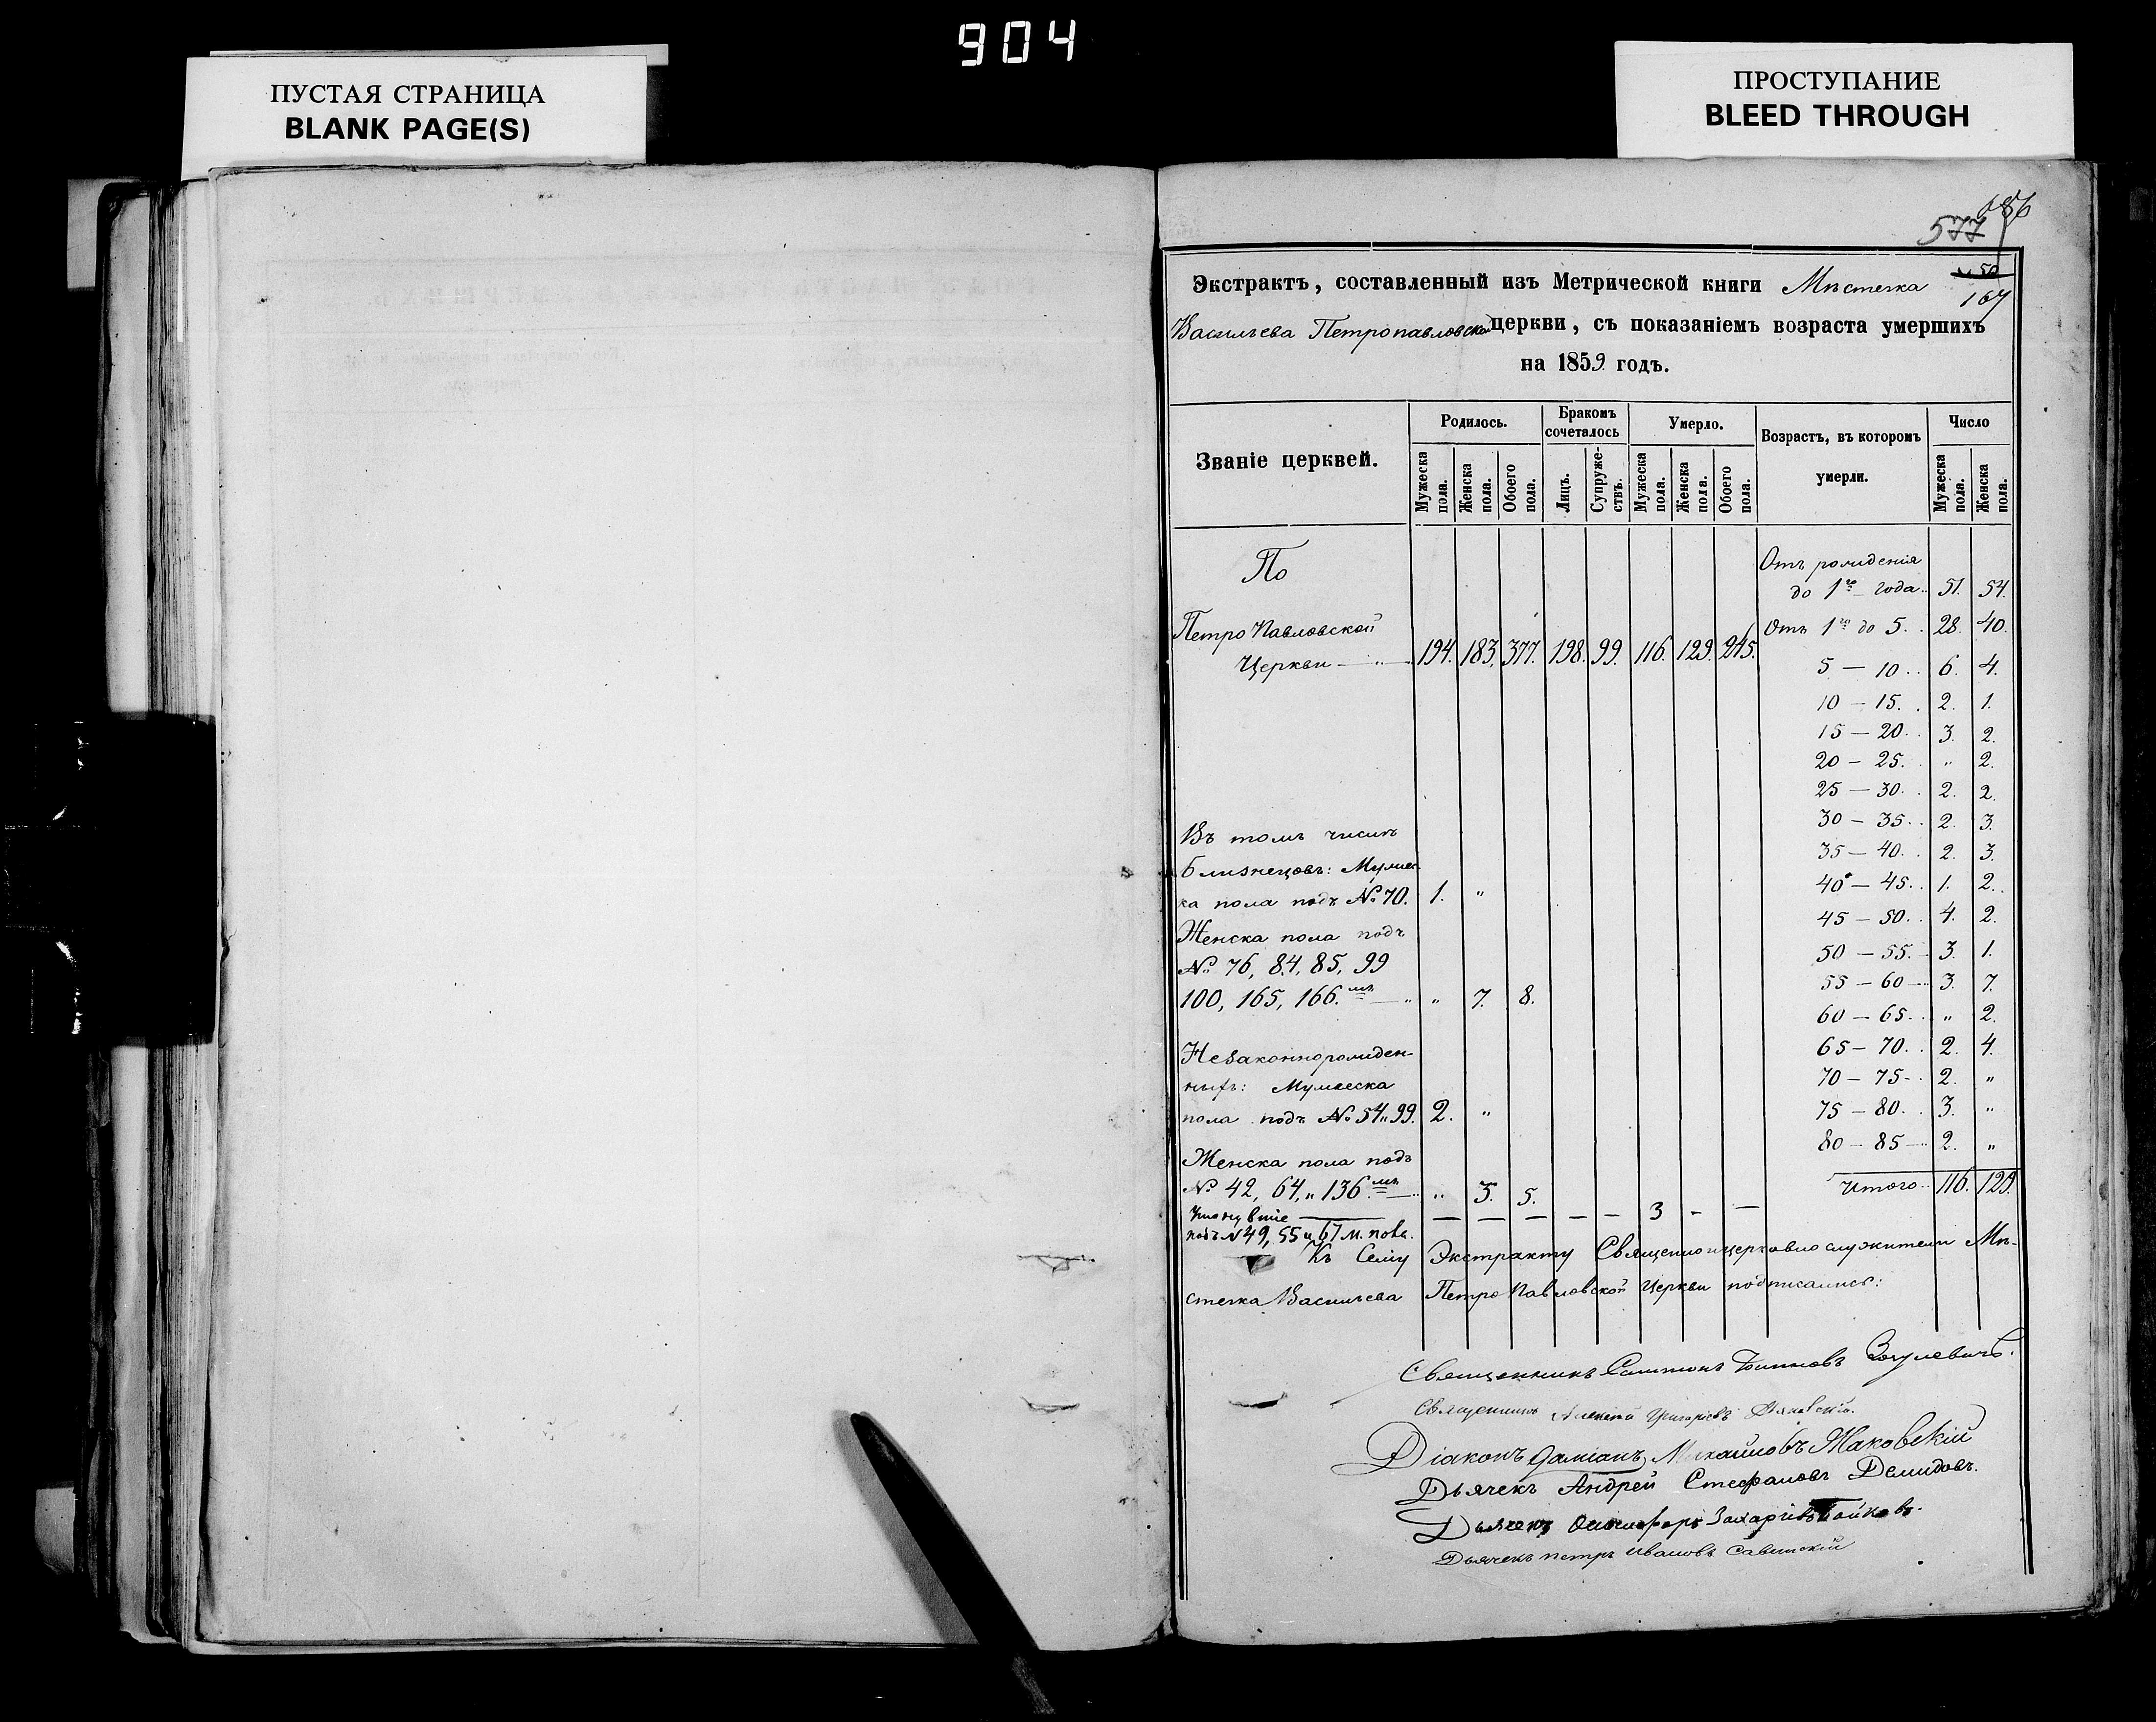 904
ПУСТАЯ СТРАНИЦА
BLANK PAGE(S)
ПРОСТУПАНИЕ
BLEED THROUGH
577
167
Экстрактъ, составленный изъ Метрической книги Мѣстечка
Васильева Петропавловской церкви, съ показаніемъ возраста умершихъ
на 1859 годъ.
Званіе церквей.
Родилось.
Бракомъ сочеталось
Умерло.
Возрастъ, въ которомъ умерли.
Число
Мужеска пола.
Женска пола.
Обоего пола.
Лицъ.
Супружествъ.
Мужеска пола.
Женска пола.
Обоего пола.
Мужеска пола.
Женска пола.
По
Петро Павловской
Церкви 194. 183. 377. 198. 99. 116. 129. 245.
Отъ рожденія
до 1го года.. 51. 54.
Отъ 1го до 5.. 28. 40.
5 — 10.. 6. 4.
10 — 15.. 2. 1.
15 — 20.. 3. 2.
20 — 25.. „ 2.
25 — 30.. 2. 2.
30 — 35.. 2. 3.
35 — 40.. 2. 3.
40 — 45.. 1. 2.
45 — 50.. 4. 2.
50 — 55. 3. 1.
55 — 60 3. 7.
60 — 65.. „ 2.
65 — 70.. 2. 4.
70 — 75.. 2. „
75 — 80.. 3. „
80 — 85 2. „
Итого 116. 129.
Въ томъ числѣ
близнецовъ: Мужес
ка пола подъ № 70. 1. „
Женска пола подъ
№ 76, 84, 85, 99
100, 165, 166.мъ „ 7. 8.
Незаконнорожден-
ныхъ: Мужеска
пола подъ № 54 „ 99. 2. „
Женска пола подъ
№ 42, 64, „ 136.мъ „ 3. 5.
подъ № 49, 55 и 67 м. пола. — — — — — 3 — —
Къ Сему Экстракту Священноицерковнослужители Мѣ-
стечка Васильева Петро Павловской Церкви подписались:
Священникъ
Священникъ Алексѣй Григорьевъ
Діаконъ Даміанъ Михайловъ Маковскій
Дьячекъ Андрей Стефановъ Демидовъ.
Дьячекъ Онисифоръ Захаріевъ
Дьячекъ петръ ивановъ Савитскій